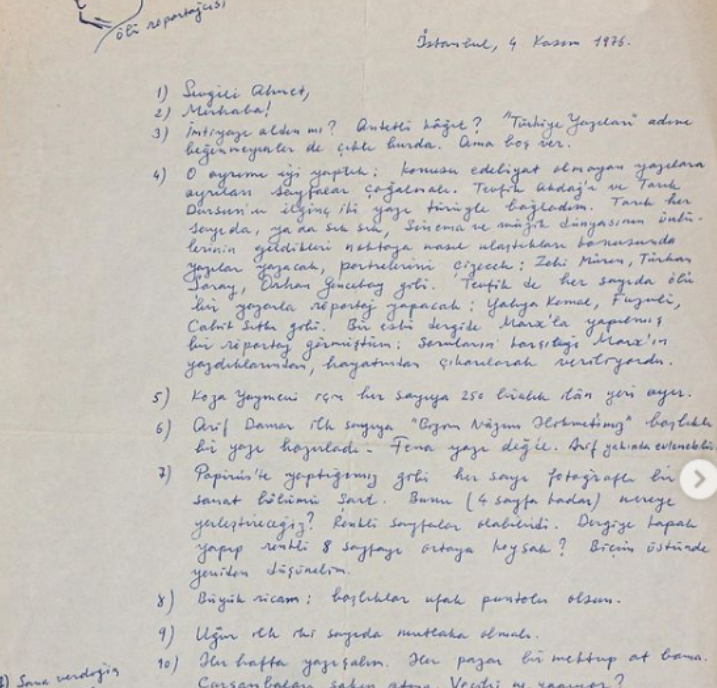 ölü röportajcısı
İstanbul, 4 Kasım 1976.
1) Sevgili Ahmet,
2) Merhaba!
3) İmtiyazı aldın mı? Antetli kâğıt? "Türkiye Yazıları" adını
beğenmeyenler de çıktı burda. Ama boş ver.
4) O ayrımı iyi yaptık: konusu edebiyat olmayan yazılara
ayrılan sayfalar çoğalmalı. Tevfik Akdağ'ı ve Tarık
Dursun'u ilginç iki yazı türüyle bağladım. Tarık her
sayıda, ya da sık sık, sinema ve müzik dünyasının ünlü-
lerinin geldikleri noktaya nasıl ulaştıkları konusunda
yazılar yazacak, portrelerini çizecek: Zeki Müren, Türkan
Şoray, Orhan Gencebay gibi. Tevfik de her sayıda ölü
bir yazarla röportaj yapacak: Yahya Kemal, Fuzuli,
Cahit Sıtkı gibi. Bir eski dergide Marx'la yapılmış
bir röportaj görmüştüm: Soruların karşılığı Marx'ın
yazdıklarından, hayatından çıkarılarak veriliyordu.
5) Koza Yayınevi için her sayıya 250 liralık ilân yeri ayır.
6) Arif Damar ilk sayıya "Bizim Nâzım Hikmetimiz" başlıklı
bir yazı hazırladı. Fena yazı değil. Arif yakında evlenebilir.
7) Papirüs'te yaptığımız gibi her sayı fotoğraflı bir
sanat bölümü şart. Bunu (4 sayfa kadar) nereye
yerleştireceğiz? Renkli sayfalar olabilirdi. Dergiye kapak
yapıp renkli 8 sayfayı ortaya koysak? Biçim üstünde
yeniden düşünelim.
8) Büyük ricam: başlıklar ufak puntolu olsun.
9) Uğur ilk iki sayıda mutlaka olmalı.
10) Her hafta yazışalım. Her pazar bir mektup at bana.
Çarşambaları sakın atma. Vecihi ne yapıyor?
Sana verdiğin